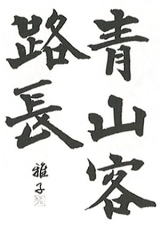 青山客
路長
雅子